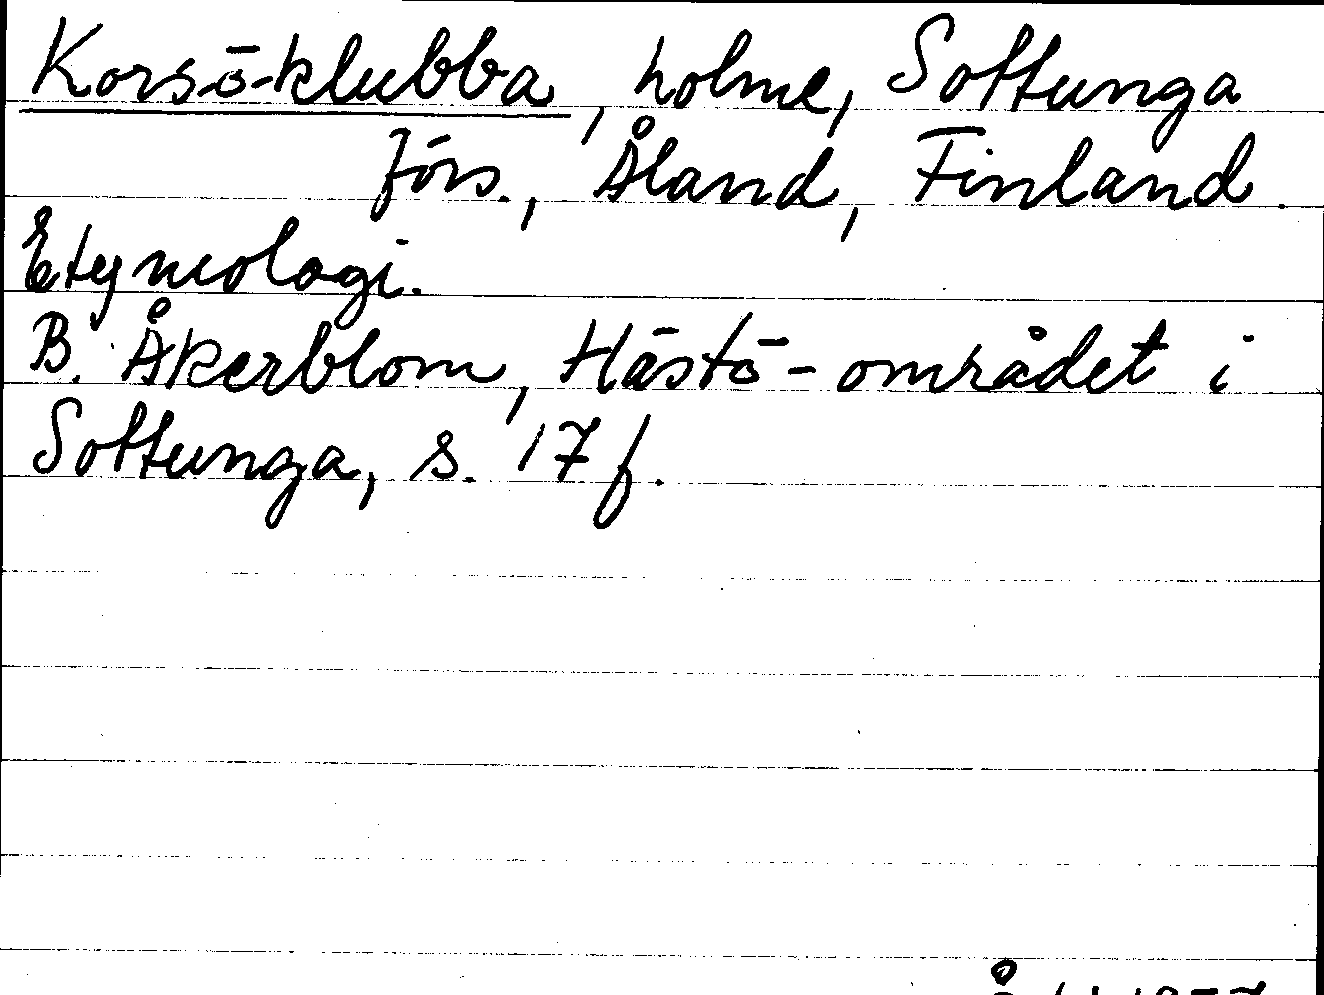 Korsö-klubba, holme, Sottunga
förs., Åland, Finland.
Etymologi.
B. Åkerblom, Hästö-området i
Sottunga, s. 17 f.